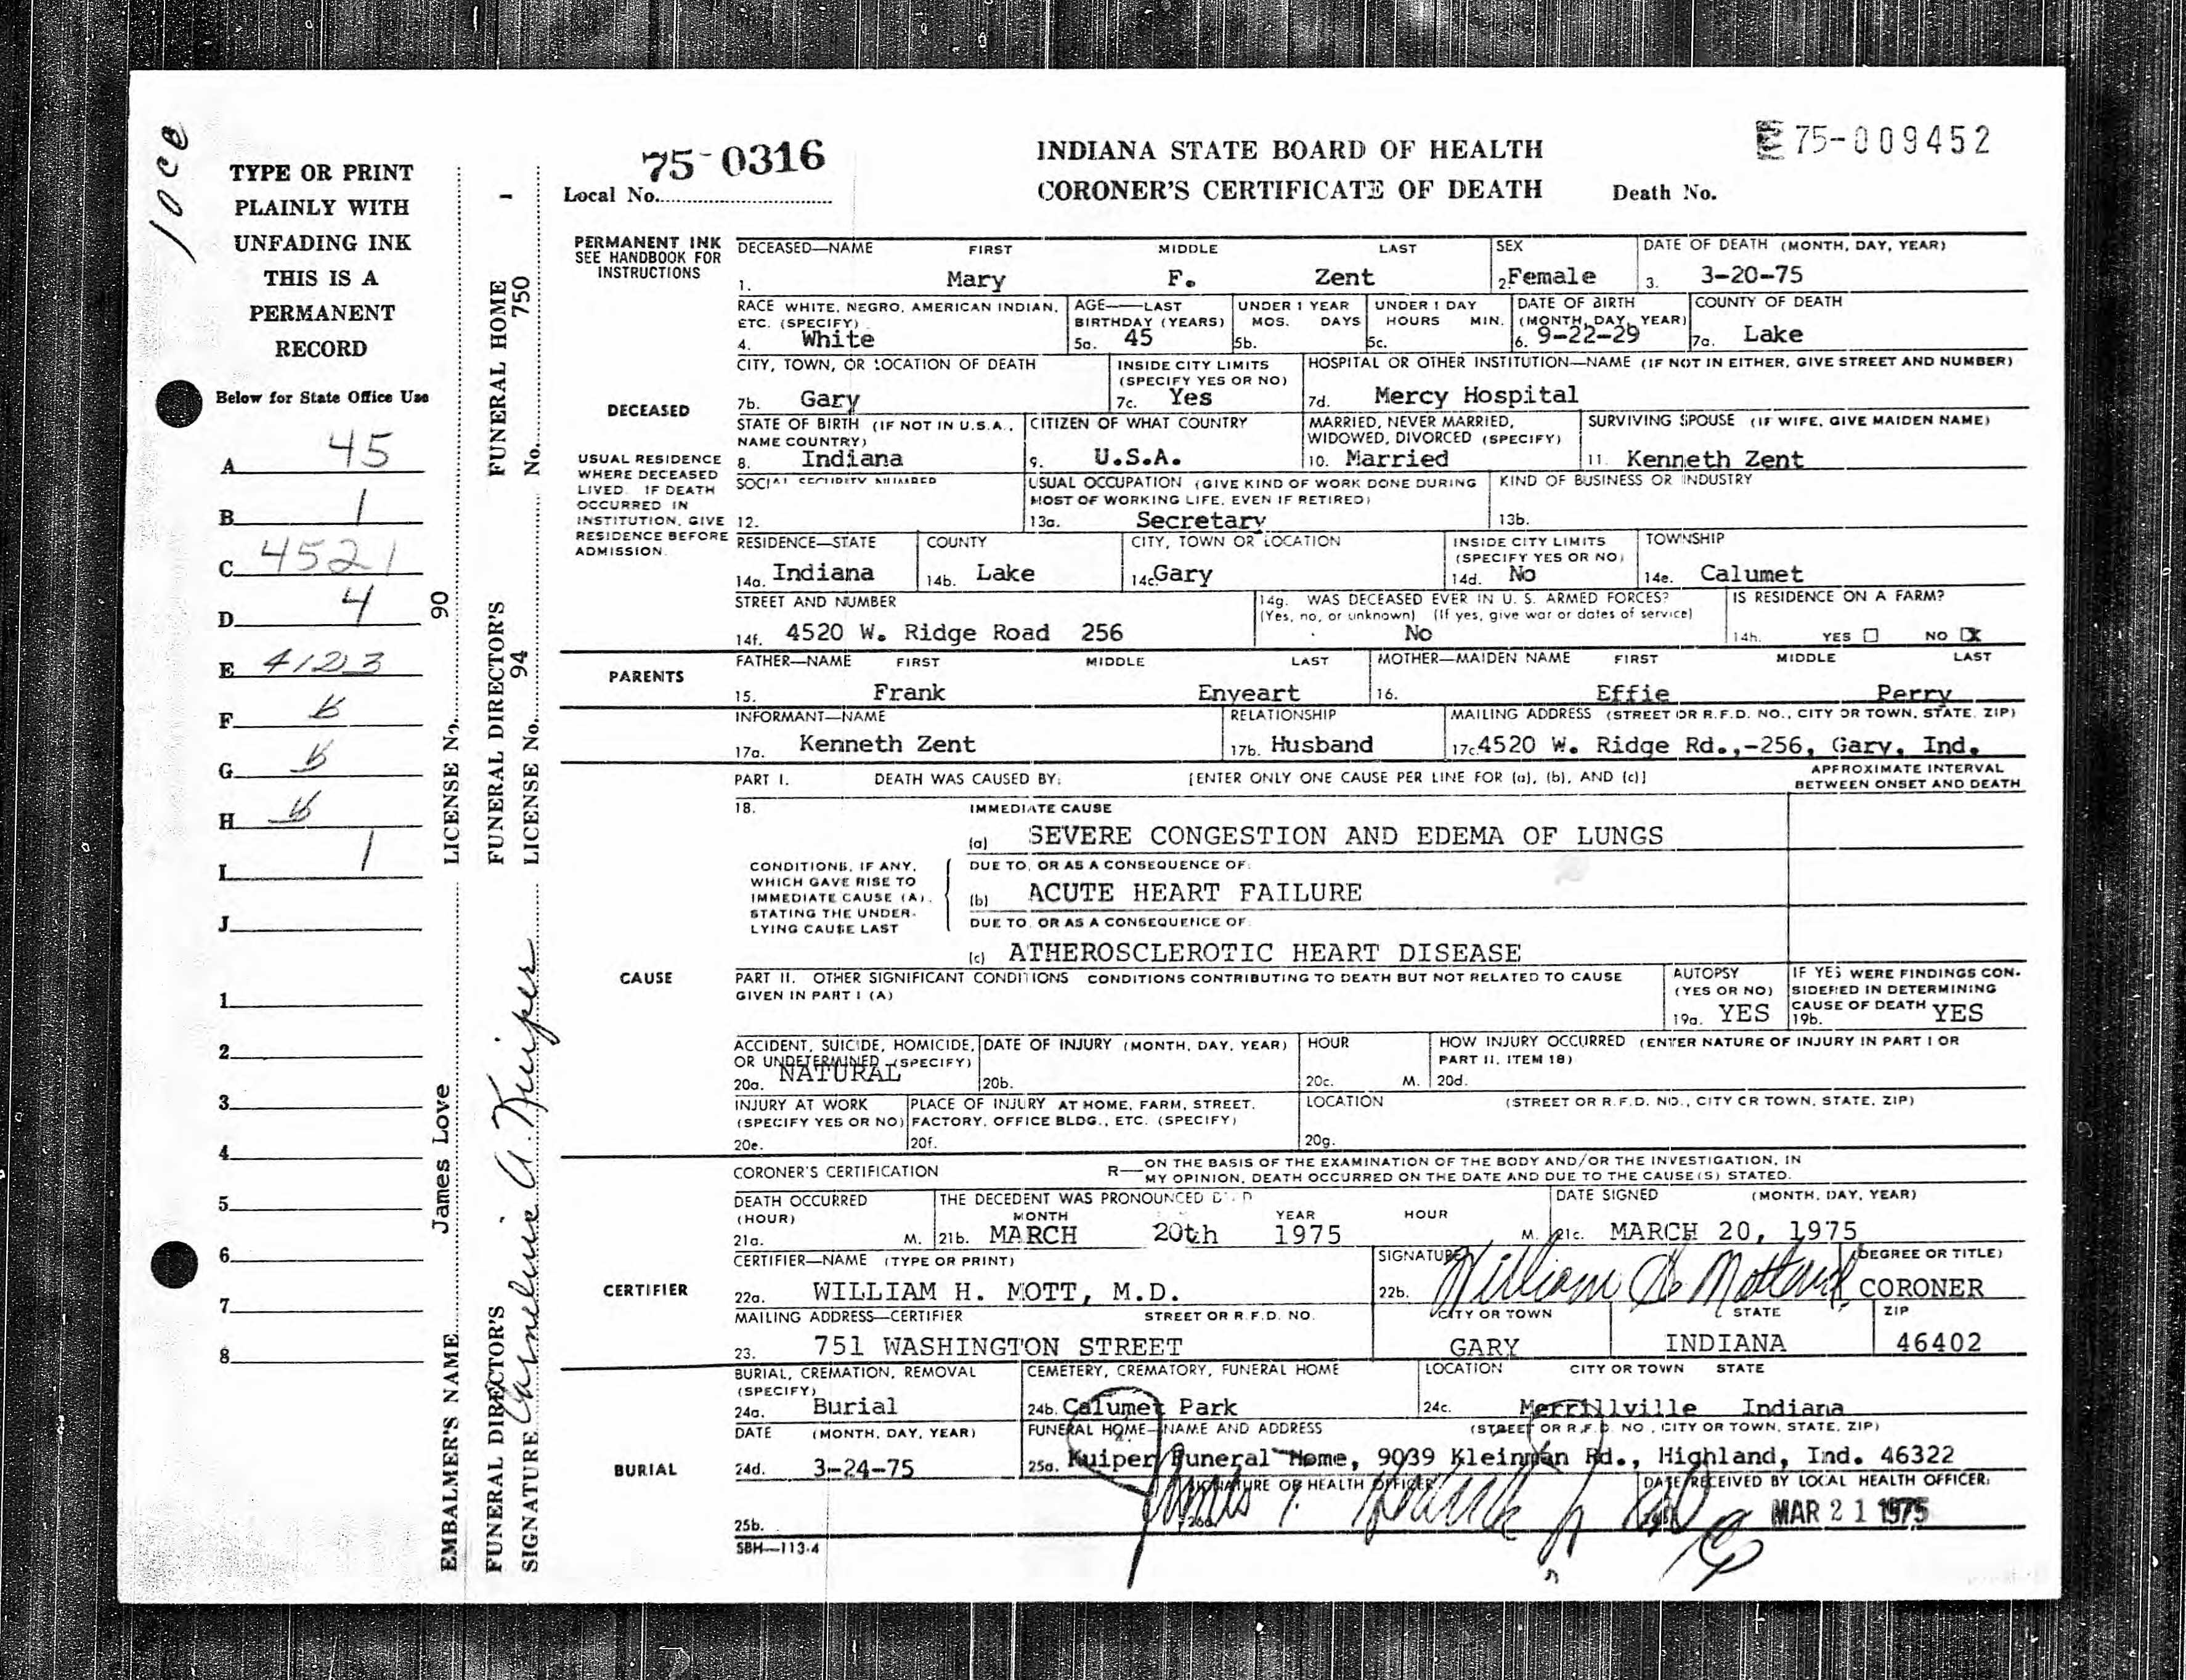 10CE
TYPE OR PRINT
PLAINLY WITH
UNFADING INK
THIS IS A
PERMANENT
RECORD
Below for State Office Use
A 45
B 1
C 4521
D 4
E 4123
F
G
H
I 1
J
1
2
3
4
5
6
7
8
EMBALMER'S NAME James Love LICENSE No. 90
FUNERAL DIRECTOR'S SIGNATURE Kuiper
FUNERAL DIRECTOR'S LICENSE No. 94
FUNERAL HOME No. 750
75-0316
Local No.
INDIANA STATE BOARD OF HEALTH
CORONER'S CERTIFICATE OF DEATH
Death No.
75-009452
PERMANENT INK
SEE HANDBOOK FOR
INSTRUCTIONS
DECEASED
USUAL RESIDENCE
WHERE DECEASED
LIVED. IF DEATH
OCCURRED IN
INSTITUTION, GIVE
RESIDENCE BEFORE
ADMISSION.
DECEASED—NAME FIRST MIDDLE LAST SEX DATE OF DEATH (MONTH, DAY, YEAR)
1. Mary F. Zent 2. Female 3. 3-20-75
RACE WHITE, NEGRO, AMERICAN INDIAN, AGE—LAST UNDER 1 YEAR UNDER 1 DAY DATE OF BIRTH COUNTY OF DEATH
ETC. (SPECIFY) BIRTHDAY (YEARS) MOS. DAYS HOURS MIN. (MONTH, DAY, YEAR)
4. White 5a. 45 5b. 5c. 6. 9-22-29 7a. Lake
CITY, TOWN, OR LOCATION OF DEATH INSIDE CITY LIMITS HOSPITAL OR OTHER INSTITUTION—NAME (IF NOT IN EITHER, GIVE STREET AND NUMBER)
(SPECIFY YES OR NO)
7b. Gary 7c. Yes 7d. Mercy Hospital
STATE OF BIRTH (IF NOT IN U.S.A., CITIZEN OF WHAT COUNTRY MARRIED, NEVER MARRIED, SURVIVING SPOUSE (IF WIFE, GIVE MAIDEN NAME)
NAME COUNTRY) WIDOWED, DIVORCED (SPECIFY)
8. Indiana 9. U.S.A. 10. Married 11. Kenneth Zent
SOCIAL SECURITY NUMBER USUAL OCCUPATION (GIVE KIND OF WORK DONE DURING KIND OF BUSINESS OR INDUSTRY
MOST OF WORKING LIFE, EVEN IF RETIRED)
12. 13a. Secretary 13b.
RESIDENCE—STATE COUNTY CITY, TOWN OR LOCATION INSIDE CITY LIMITS TOWNSHIP
(SPECIFY YES OR NO)
14a. Indiana 14b. Lake 14c. Gary 14d. No 14e. Calumet
STREET AND NUMBER 14g. WAS DECEASED EVER IN U. S. ARMED FORCES? IS RESIDENCE ON A FARM?
(Yes, no, or unknown) (If yes, give war or dates of service)
14f. 4520 W. Ridge Road 256 No 14h. YES NO X
PARENTS
FATHER—NAME FIRST MIDDLE LAST MOTHER—MAIDEN NAME FIRST MIDDLE LAST
15. Frank Enyeart 16. Effie Perry
INFORMANT—NAME RELATIONSHIP MAILING ADDRESS (STREET OR R.F.D. NO., CITY OR TOWN, STATE, ZIP)
17a. Kenneth Zent 17b. Husband 17c. 4520 W. Ridge Rd.,-256, Gary, Ind.
CAUSE
PART I. DEATH WAS CAUSED BY: [ENTER ONLY ONE CAUSE PER LINE FOR (a), (b), AND (c)] APPROXIMATE INTERVAL
BETWEEN ONSET AND DEATH
18. IMMEDIATE CAUSE
(a) SEVERE CONGESTION AND EDEMA OF LUNGS
CONDITIONS, IF ANY,
WHICH GAVE RISE TO
IMMEDIATE CAUSE (A),
STATING THE UNDER-
LYING CAUSE LAST
DUE TO, OR AS A CONSEQUENCE OF:
(b) ACUTE HEART FAILURE
DUE TO, OR AS A CONSEQUENCE OF:
(c) ATHEROSCLEROTIC HEART DISEASE
PART II. OTHER SIGNIFICANT CONDITIONS CONDITIONS CONTRIBUTING TO DEATH BUT NOT RELATED TO CAUSE AUTOPSY IF YES WERE FINDINGS CON-
GIVEN IN PART I (A) (YES OR NO) SIDERED IN DETERMINING
CAUSE OF DEATH
19a. YES 19b. YES
ACCIDENT, SUICIDE, HOMICIDE, DATE OF INJURY (MONTH, DAY, YEAR) HOUR HOW INJURY OCCURRED (ENTER NATURE OF INJURY IN PART I OR
OR UNDETERMINED (SPECIFY) PART II, ITEM 18)
20a. NATURAL 20b. 20c. M. 20d.
INJURY AT WORK PLACE OF INJURY AT HOME, FARM, STREET, LOCATION (STREET OR R.F.D. NO., CITY OR TOWN, STATE, ZIP)
(SPECIFY YES OR NO) FACTORY, OFFICE BLDG., ETC. (SPECIFY)
20e. 20f. 20g.
CERTIFIER
CORONER'S CERTIFICATION R— ON THE BASIS OF THE EXAMINATION OF THE BODY AND/OR THE INVESTIGATION, IN
MY OPINION, DEATH OCCURRED ON THE DATE AND DUE TO THE CAUSE(S) STATED.
DEATH OCCURRED THE DECEDENT WAS PRONOUNCED DATE SIGNED (MONTH, DAY, YEAR)
(HOUR) MONTH YEAR HOUR
21a. M. 21b. MARCH 20th 1975 M. 21c. MARCH 20, 1975
CERTIFIER—NAME (TYPE OR PRINT) SIGNATURE (DEGREE OR TITLE)
22a. WILLIAM H. MOTT, M.D. 22b. William H. Mott CORONER
MAILING ADDRESS—CERTIFIER STREET OR R.F.D. NO. CITY OR TOWN STATE ZIP
23. 751 WASHINGTON STREET GARY INDIANA 46402
BURIAL
BURIAL, CREMATION, REMOVAL CEMETERY, CREMATORY, FUNERAL HOME LOCATION CITY OR TOWN STATE
(SPECIFY)
24a. Burial 24b. Calumet Park 24c. Merrillville Indiana
DATE (MONTH, DAY, YEAR) FUNERAL HOME—NAME AND ADDRESS (STREET OR R.F.D. NO., CITY OR TOWN, STATE, ZIP)
24d. 3-24-75 25a. Kuiper Funeral Home, 9039 Kleinman Rd., Highland, Ind. 46322
SIGNATURE OF HEALTH OFFICER DATE RECEIVED BY LOCAL HEALTH OFFICER:
25b. MAR 21 1975
SBH—113-4